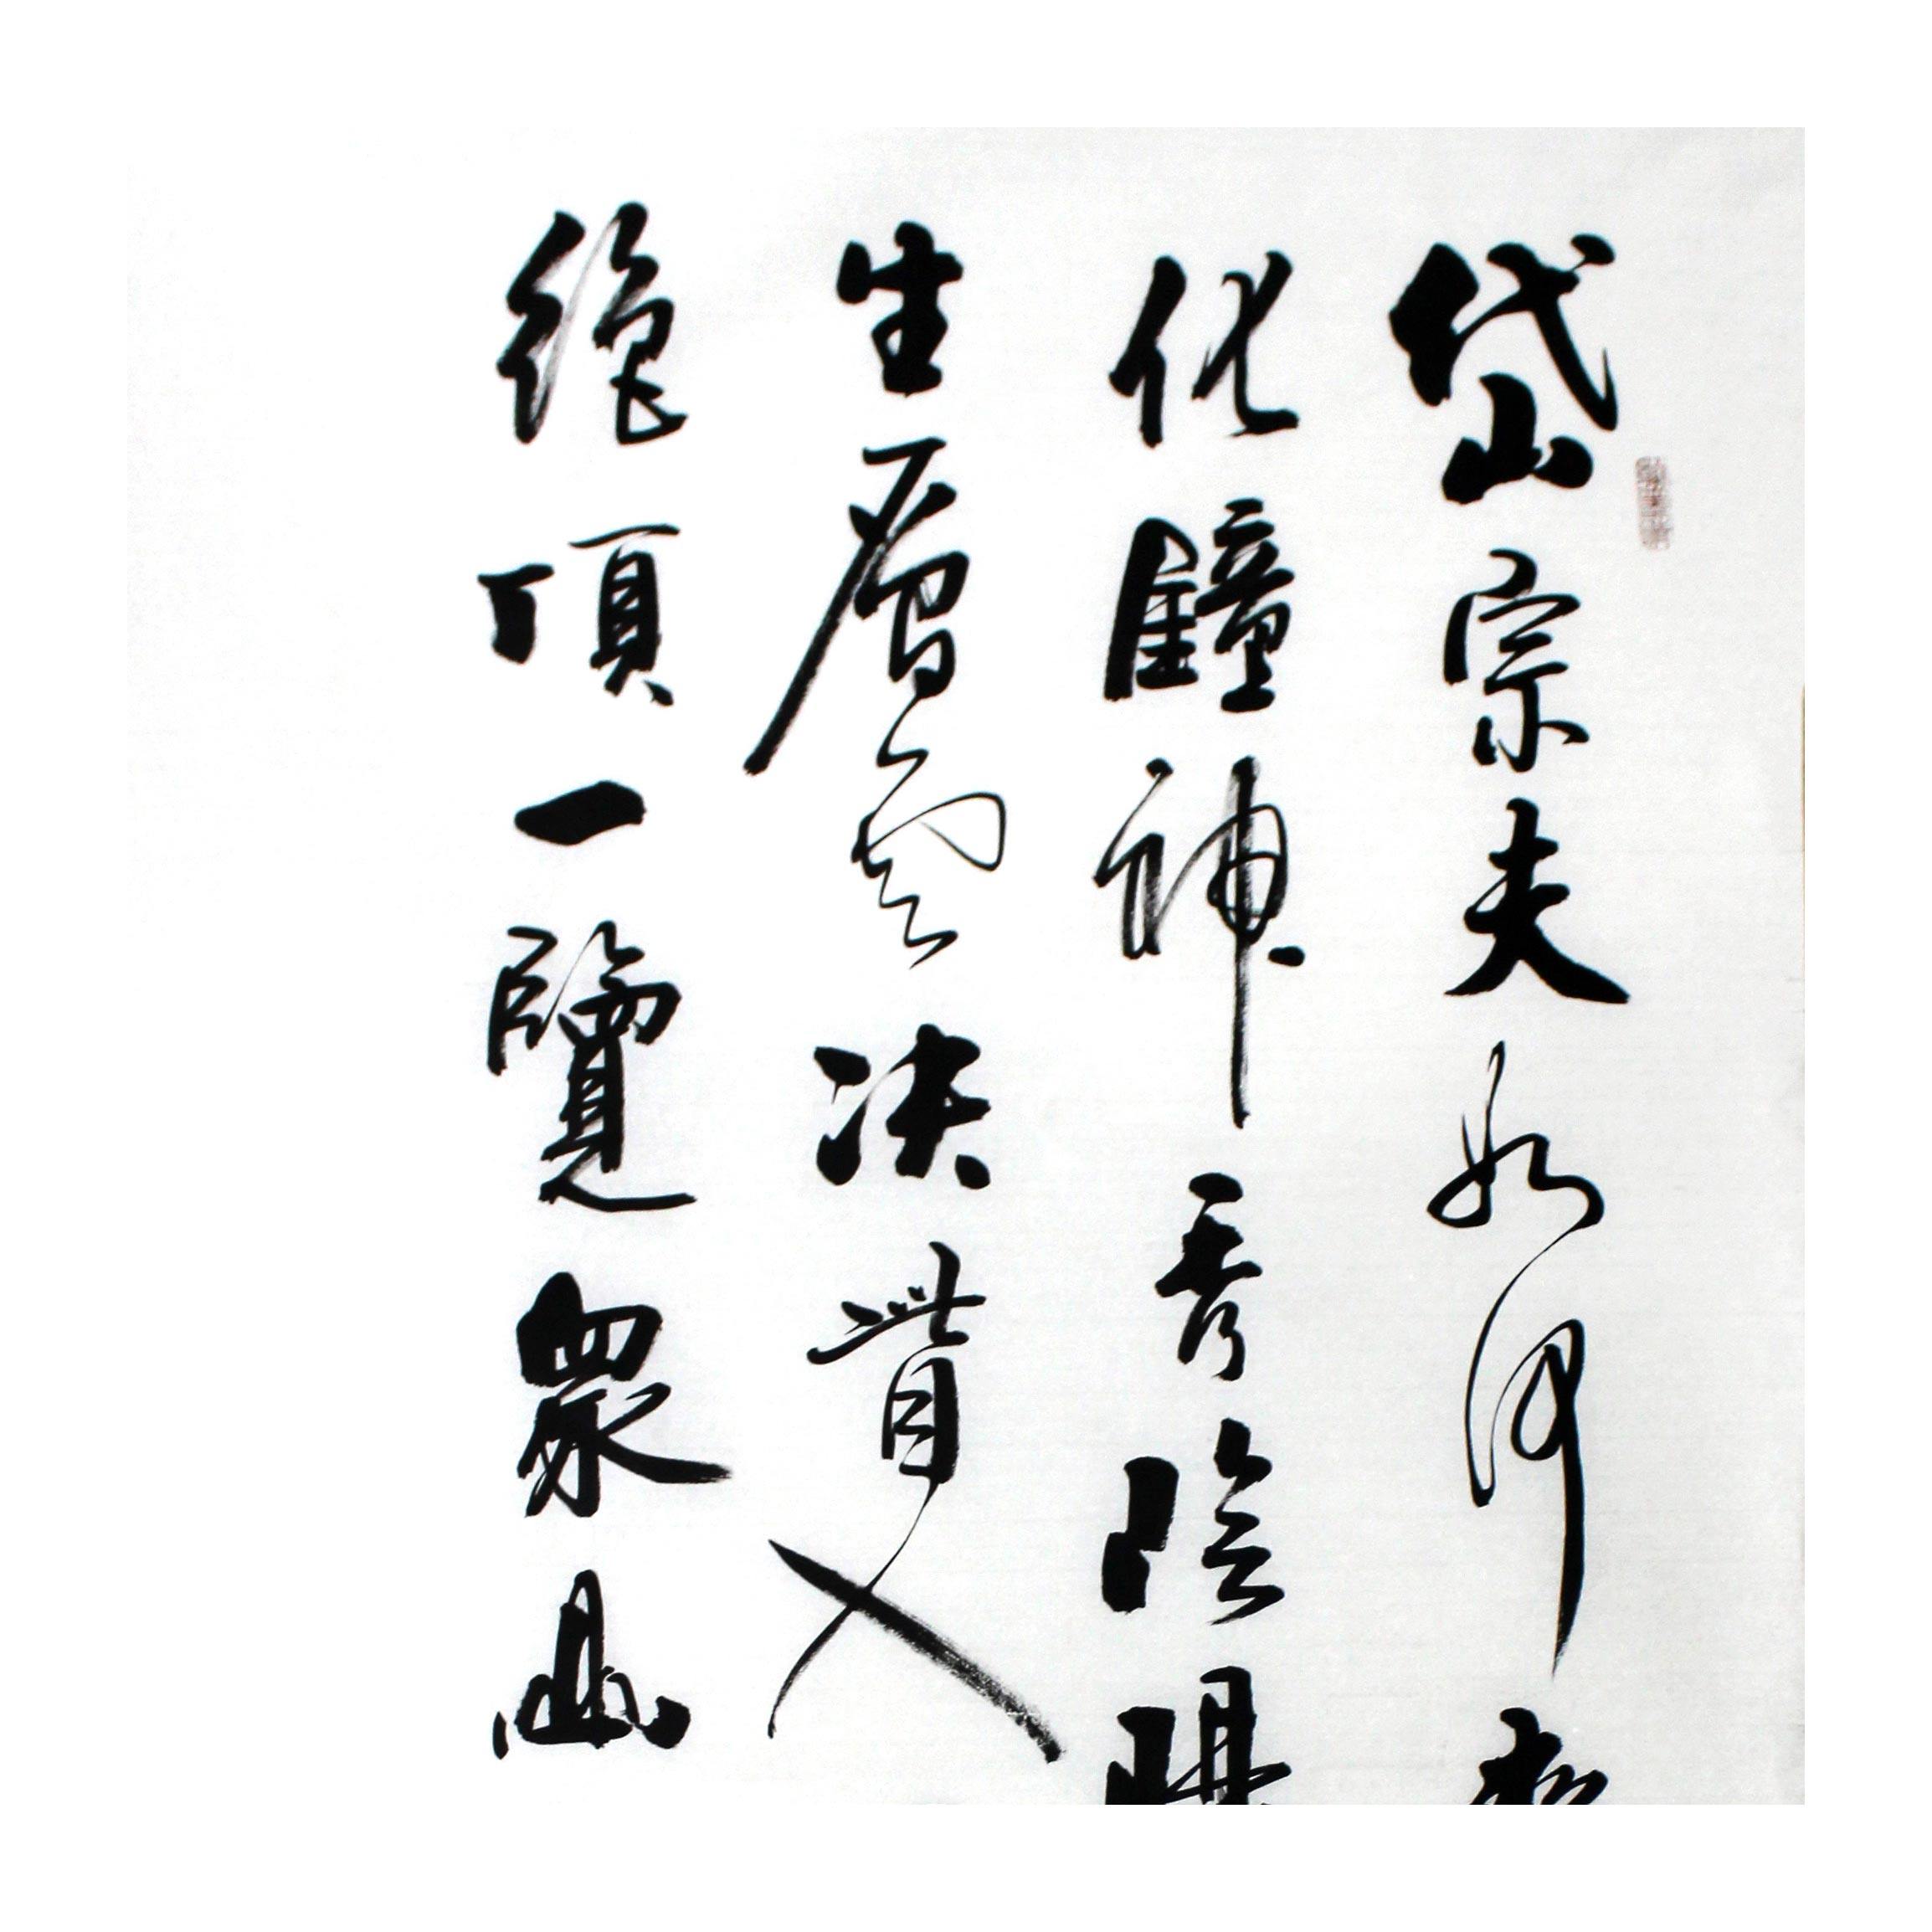 岱宗夫如何
化鐘神秀陰陽
生層雲决眥入
絕頂一覽眾山